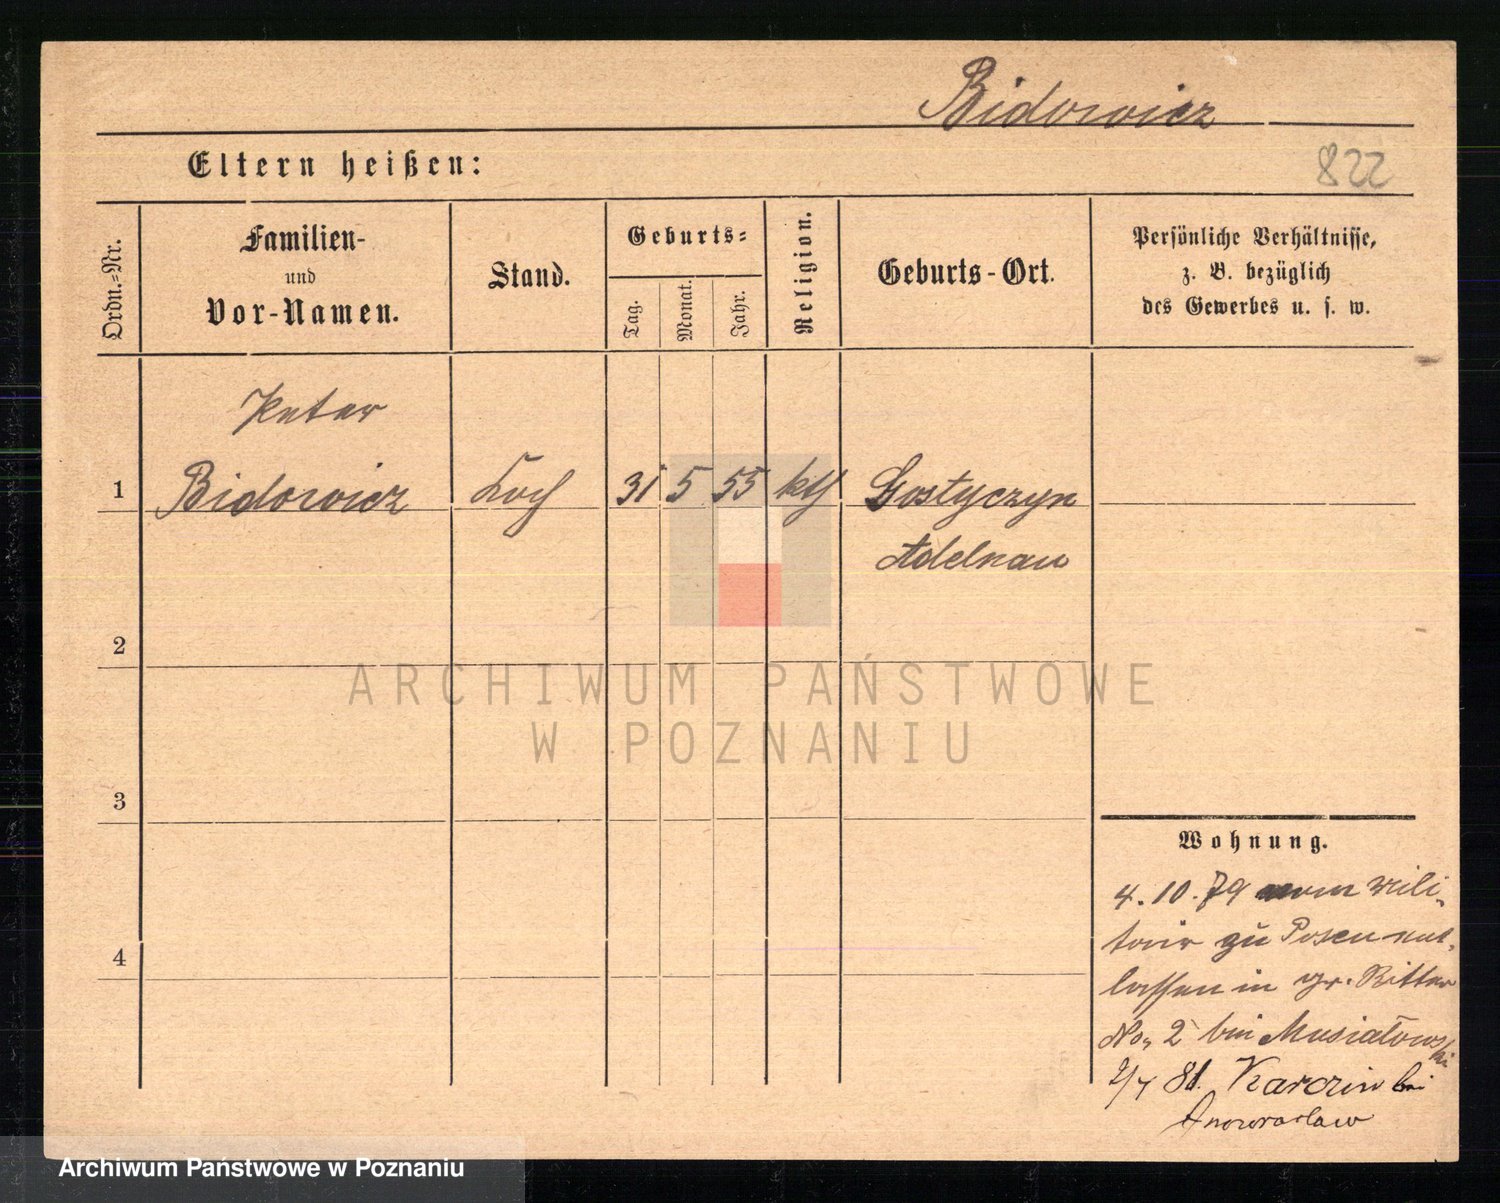 Bidowicz
822
Eltern heißen:
Ordn.-Nr.
Familien-
und
Vor-Namen.
Stand.
Geburts-
Tag.
Monat.
Jahr.
Religion.
Geburts-Ort.
Persönliche Verhältnisse,
z. B. bezüglich
des Gewerbes u. s. w.
Peter
1 Bidowicz Koch 31 5 55 kth Gostyczyn
Adelnau
2
3
4
ARCHIWUM PAŃSTWOWE
W POZNANIU
Wohnung.
4. 10. 79 vom Mili-
tair zu Posen ent-
lassen in gr. Ritter
No. 2 bei Musiałowski
2/7 81. Karczin bei
Inowraclaw
Archiwum Państwowe w Poznaniu